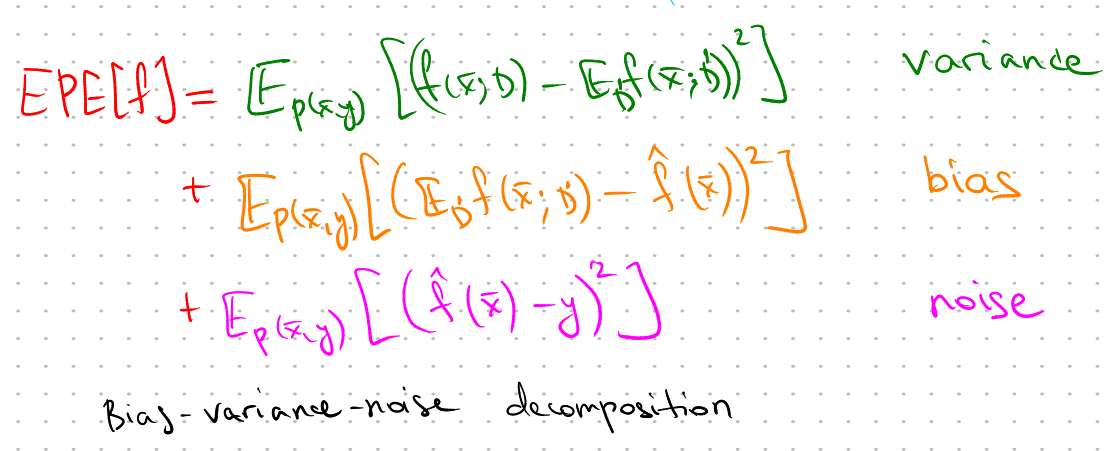 EPE[f] = E_p(x̄,y) [(f(x̄;D) - E_D f(x̄;D))²] variance
+ E_p(x̄,y) [(E_D f(x̄;D) - f̂(x̄))²] bias
+ E_p(x̄,y) [(f̂(x̄) - y)²] noise
Bias-variance-noise decomposition